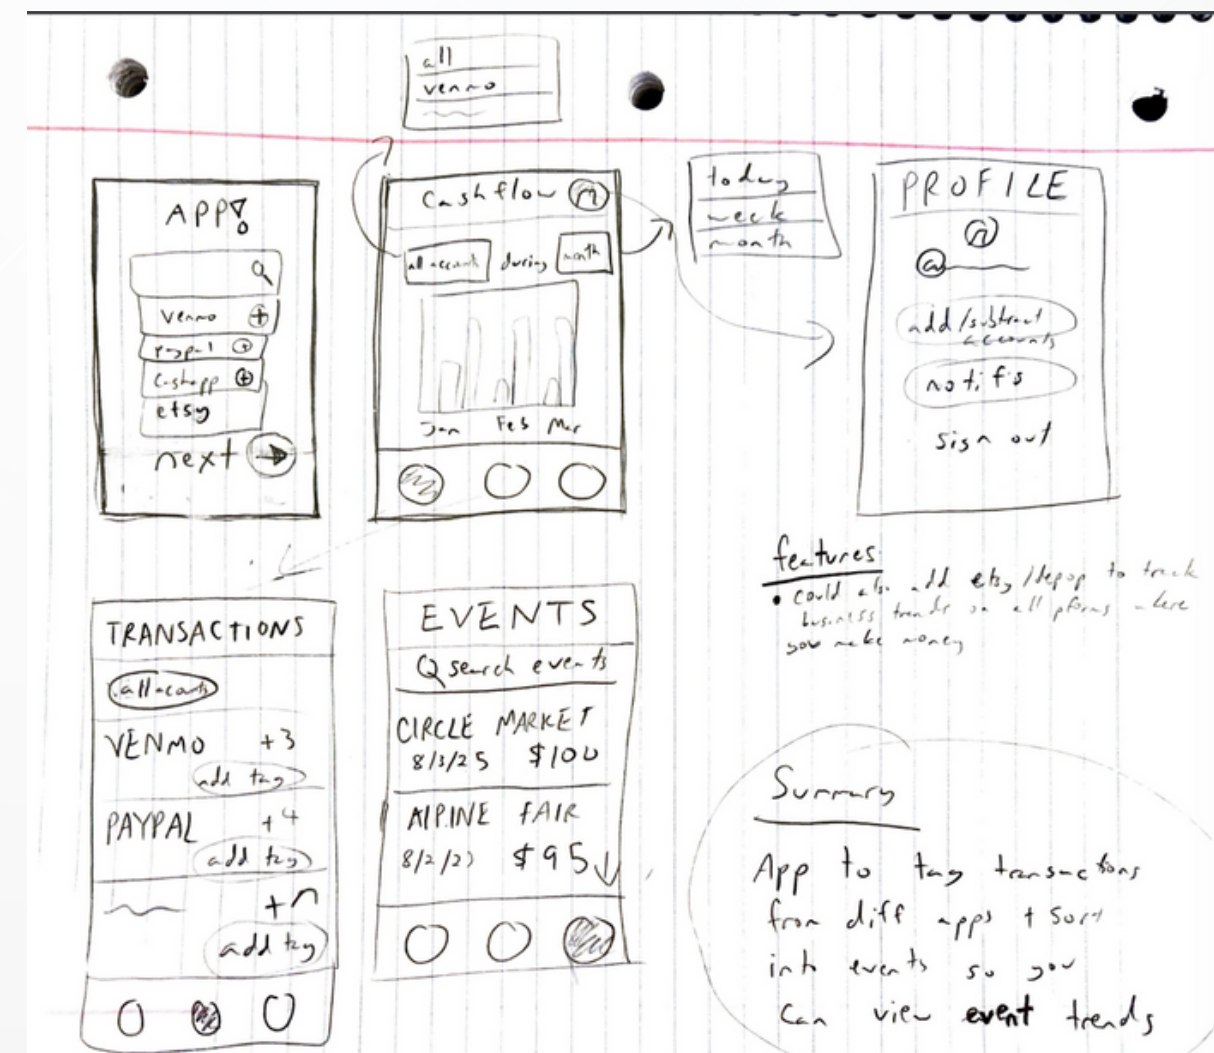 all
venmo
APP!
venmo
paypal
Cashapp
etsy
next
Cashflow
all accounts during month
Jan Feb Mar
today
week
month
PROFILE
@
add/subtract
accounts
notifs
sign out
features
• could also add etsy/depop to track
business trends on all pforms where
you make money
TRANSACTIONS
all accounts
VENMO +3
add tag
PAYPAL +4
add tag
+n
add tag
EVENTS
search events
CIRCLE MARKET
8/3/25 $100
AlPINE FAIR
$95
Summary
App to tag transactions
from diff apps + Sort
into events so you
can view event trends